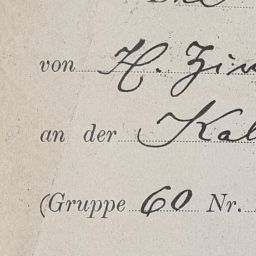 von H. Zin
an der Kal
(Gruppe 60 Nr.